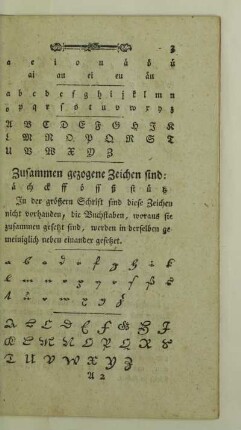 3
a e i o u ä ö ü
ai au ei eu äu
a b c d e f g h i j k l m n
o p q r ſ s t u v w x y z
A B C D E F G H J K
L M N O P Q R S T
U V W X Y Z
Zuſammen gezogene Zeichen ſind:
ä ch ck ff ö ſſ ß ſt ü tz
In der größern Schrift ſind dieſe Zeichen
nicht vorhanden; die Buchſtaben, woraus ſie
zuſammen geſetzt ſind, werden in derſelben ge-
meiniglich neben einander geſetzet.
A B C D E F G H J
K L M N O P Q R S
T U V W X Y Z
A 2